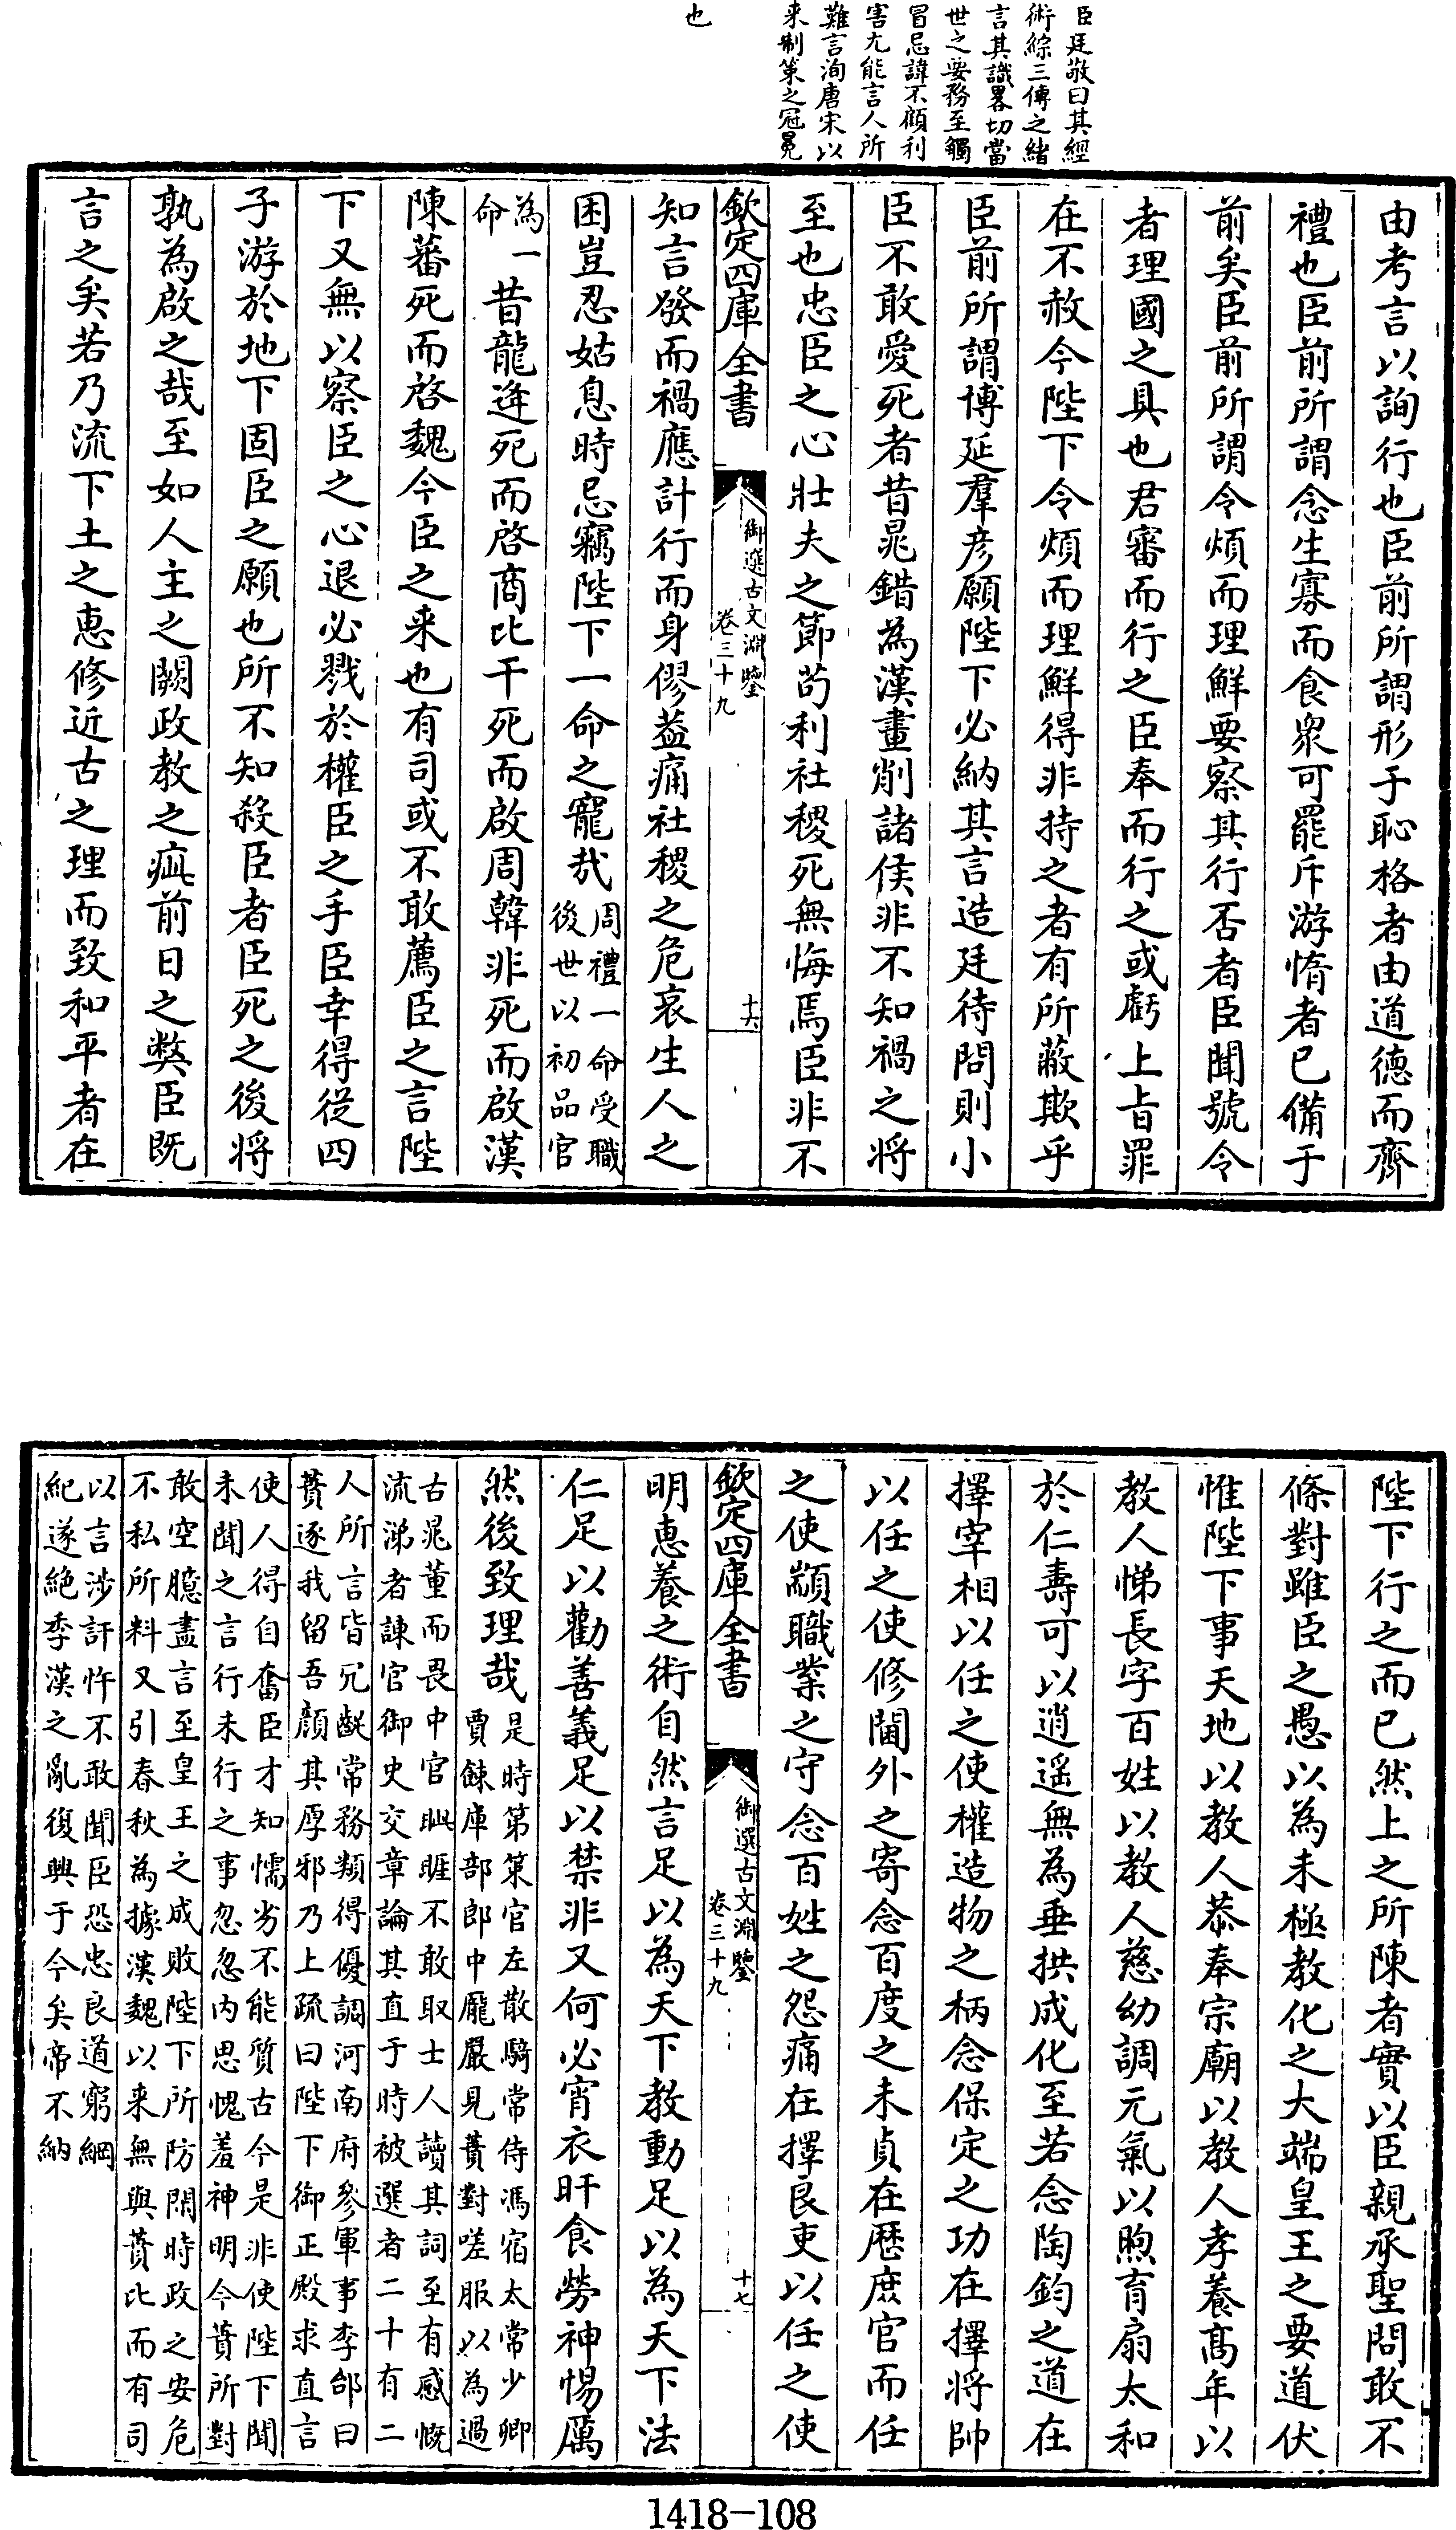 臣廷敬曰其經
術綜三傳之緒
言其識畧切當
世之要務至觸
冒忌諱不顧利
害尤能言人所
難言洵唐宋以
来制策之冠冕
也
由考言以詢行也臣前所謂形于恥格者由道德而齊
禮也臣前所謂念生寡而食衆可罷斥游惰者已備于
前矣臣前所謂令煩而理鮮要察其行否者臣聞號令
者理國之具也君審而行之臣奉而行之或虧上旨罪
在不赦今陛下令煩而理鮮得非持之者有所蔽欺乎
臣前所謂博延羣彦願陛下必納其言造廷待問則小
臣不敢愛死者昔晁錯為漢畫削諸侯非不知禍之將
至也忠臣之心壯夫之節茍利社稷死無悔焉臣非不
欽定四庫全書
御選古文淵鑒
卷三十九
十六
知言發而禍應計行而身僇葢痛社稷之危哀生人之
困豈忍姑息時忌竊陛下一命之寵哉周禮一命受職
後世以初品官
為一
命
昔龍逄死而啓商比干死而啟周韓非死而啟漢
陳蕃死而啓魏今臣之来也有司或不敢薦臣之言陛
下又無以察臣之心退必戮於權臣之手臣幸得從四
子游於地下固臣之願也所不知殺臣者臣死之後將
孰為啟之哉至如人主之闕政教之疵前日之弊臣既
言之矣若乃流下土之惠修近古之理而致和平者在
陛下行之而已然上之所陳者實以臣親承聖問敢不
條對雖臣之愚以為未極教化之大端皇王之要道伏
惟陛下事天地以教人恭奉宗廟以教人孝養髙年以
教人悌長字百姓以教人慈幼調元氣以煦育扇太和
於仁壽可以逍遥無為垂拱成化至若念陶鈞之道在
擇宰相以任之使權造物之柄念保定之功在擇將帥
以任之使修閫外之寄念百度之未貞在歴庶官而任
之使顓職業之守念百姓之怨痛在擇良吏以任之使
欽定四庫全書
御選古文淵鑒
卷三十九
十七
明惠養之術自然言足以為天下教動足以為天下法
仁足以勸善義足以禁非又何必宵衣旰食勞神惕厲
然後致理哉是時第策官左散騎常侍馮宿太常少卿
賈餗庫部郎中龎嚴見蕡對嗟服以為過
古晁董而畏中官眦睚不敢取士人讀其詞至有感慨
流涕者諫官御史交章論其直于時被選者二十有二
人所言皆宂齪常務類得優調河南府參軍事李郃曰
蕡逐我留吾顔其厚邪乃上疏曰陛下御正殿求直言
使人得自奮臣才知懦劣不能質古今是非使陛下聞
未聞之言行未行之事忽忽内思愧羞神明今蕡所對
敢空臆盡言至皇王之成敗陛下所防閑時政之安危
不私所料又引春秋為據漢魏以来無與蕡比而有司
以言涉訐忤不敢聞臣恐忠良道窮綱
紀遂絶季漢之亂復興于今矣帝不納
1418-108